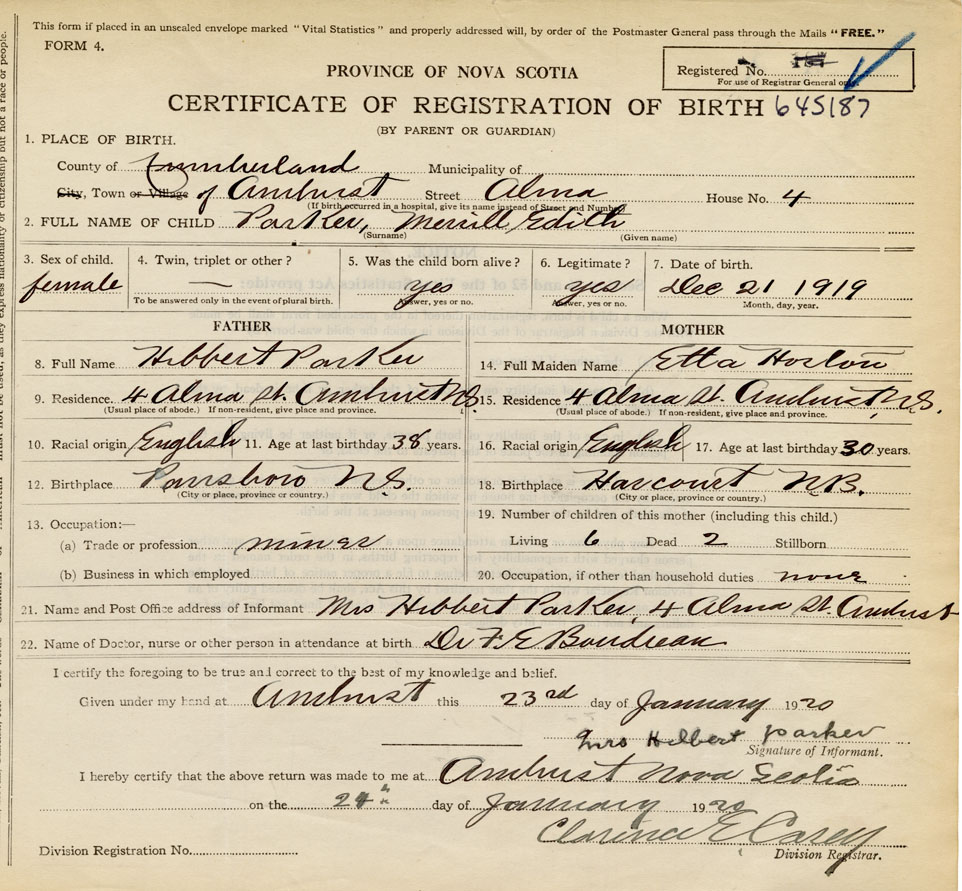 This form if placed in an unsealed envelope marked "Vital Statistics" and properly addressed will, by order of the Postmaster General pass through the Mails "FREE."
FORM 4.
PROVINCE OF NOVA SCOTIA
Registered No.
For use of Registrar General only
CERTIFICATE OF REGISTRATION OF BIRTH 645187
(BY PARENT OR GUARDIAN)
1. PLACE OF BIRTH.
County of Cumberland Municipality of
City, Town or Village of Amherst Street Alma House No. 4
(If birth occurred in a hospital, give its name instead of Street and Number)
2. FULL NAME OF CHILD Parker, Merrill Edith
(Surname) (Given name)
3. Sex of child. 4. Twin, triplet or other? 5. Was the child born alive? 6. Legitimate? 7. Date of birth.
female — yes yes Dec 21 1919
To be answered only in the event of plural birth. Answer, yes or no. Answer, yes or no. Month, day, year.
FATHER MOTHER
8. Full Name Hibbert Parker 14. Full Maiden Name Etta Horton
9. Residence. 4 Alma St. Amherst N.S. 15. Residence 4 Alma St. Amherst, N.S.
(Usual place of abode.) If non-resident, give place and province. (Usual place of abode.) If non-resident, give place and province.
10. Racial origin English 11. Age at last birthday 38 years. 16. Racial origin English 17. Age at last birthday 30 years.
12. Birthplace Parrsboro N.S. 18. Birthplace Harcourt N.B.
(City or place, province or country.) (City or place, province or country.)
13. Occupation:— 19. Number of children of this mother (including this child.)
(a) Trade or profession miner Living 6 Dead 2 Stillborn
(b) Business in which employed 20. Occupation, if other than household duties none
21. Name and Post Office address of Informant Mrs Hibbert Parker, 4 Alma St. Amherst
22. Name of Doctor, nurse or other person in attendance at birth Dr F. E Boudreau
I certify the foregoing to be true and correct to the best of my knowledge and belief.
Given under my hand at Amherst this 23rd day of January 1920
Mrs Hibbert Parker
Signature of Informant.
I hereby certify that the above return was made to me at Amherst Nova Scotia
on the 24th day of January 1920
Clarence E Casey
Division Registrar.
Division Registration No.